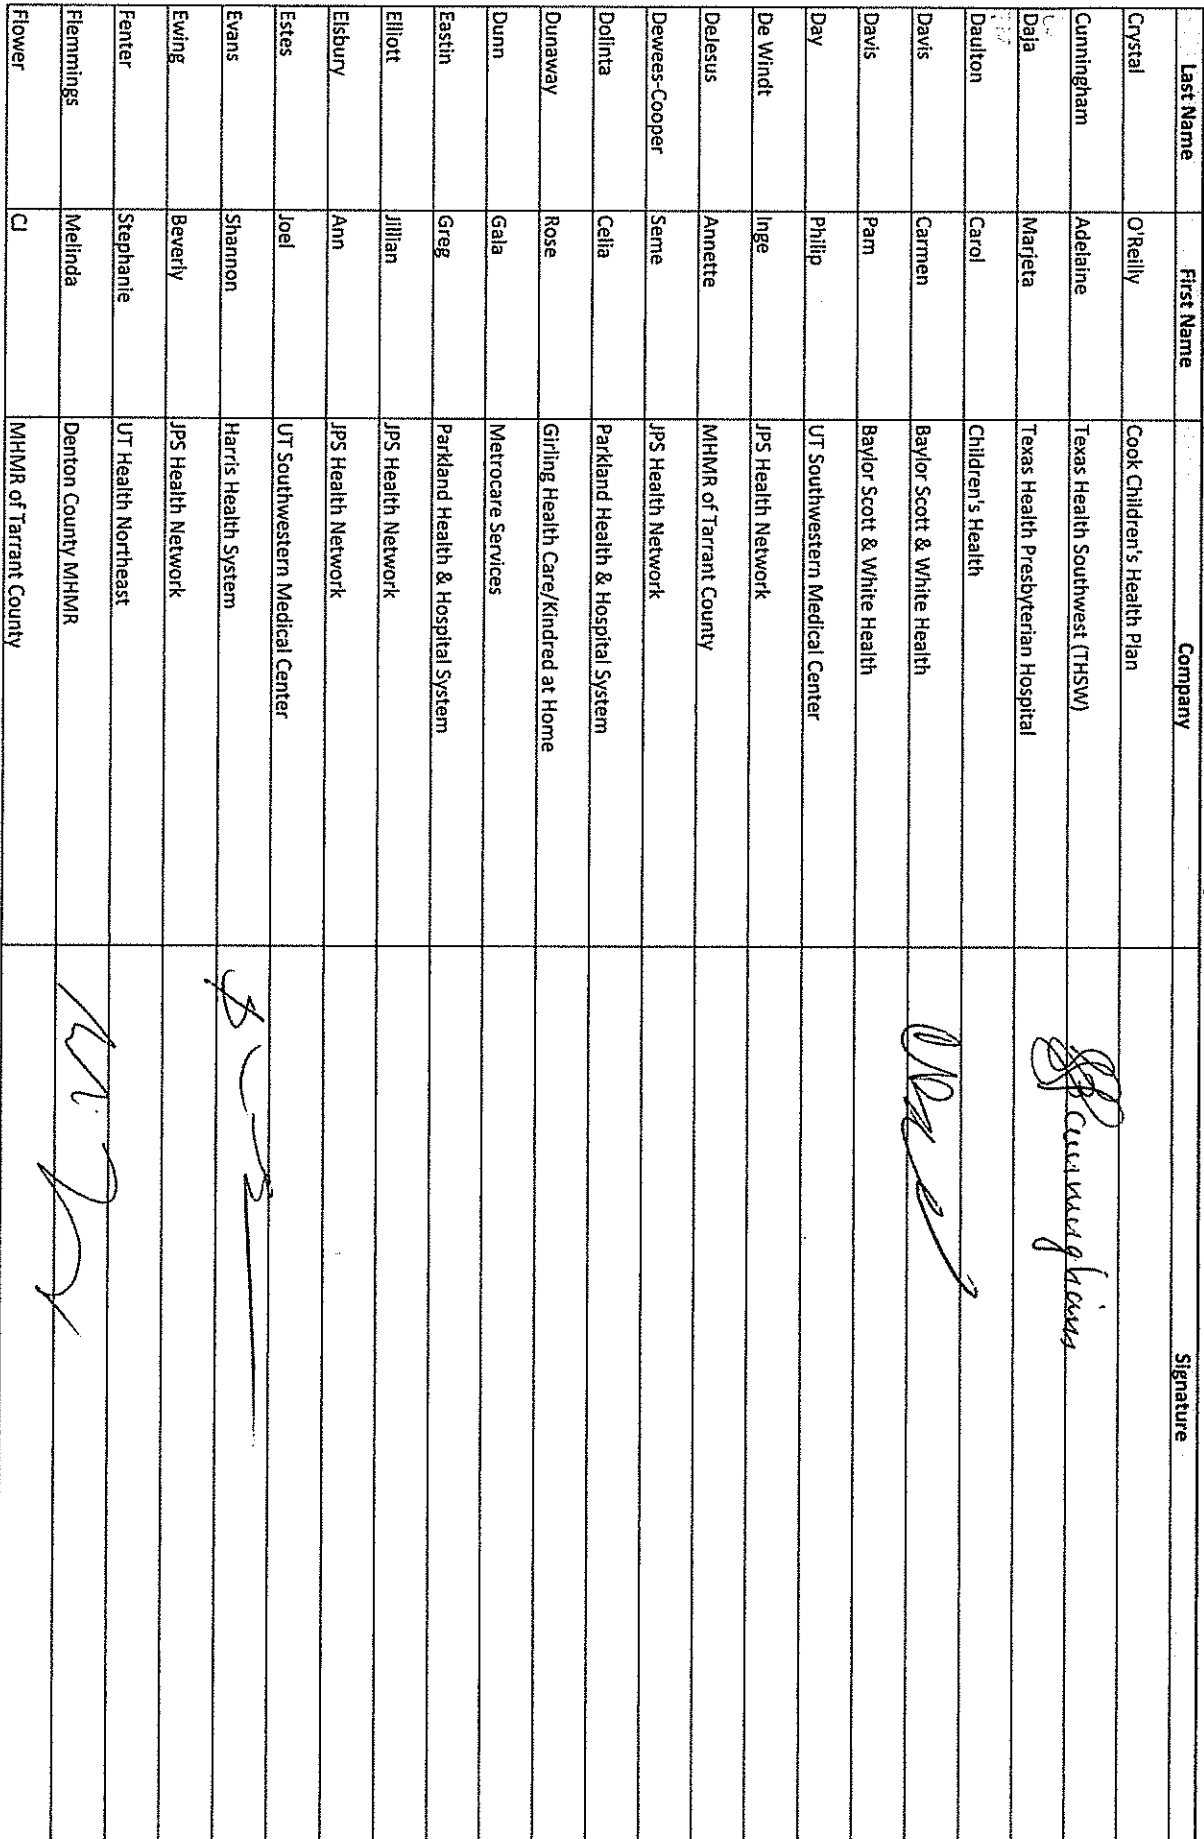 Last Name First Name Company Signature
Crystal O'Reilly Cook Children's Health Plan
Cunningham Adelaine Texas Health Southwest (THSW) Cunningham
Daja Marjeta Texas Health Presbyterian Hospital
Daulton Carol Children's Health
Davis Carmen Baylor Scott & White Health
Davis Pam Baylor Scott & White Health
Day Philip UT Southwestern Medical Center
De Windt Inge JPS Health Network
DeJesus Annette MHMR of Tarrant County
Dewees-Cooper Seme JPS Health Network
Dolinta Celia Parkland Health & Hospital System
Dunaway Rose Girling Health Care/Kindred at Home
Dunn Gala Metrocare Services
Eastin Greg Parkland Health & Hospital System
Elliott Jillian JPS Health Network
Elsbury Ann JPS Health Network
Estes Joel UT Southwestern Medical Center
Evans Shannon Harris Health System
Ewing Beverly JPS Health Network
Fenter Stephanie UT Health Northeast
Flemmings Melinda Denton County MHMR
Flower CJ MHMR of Tarrant County